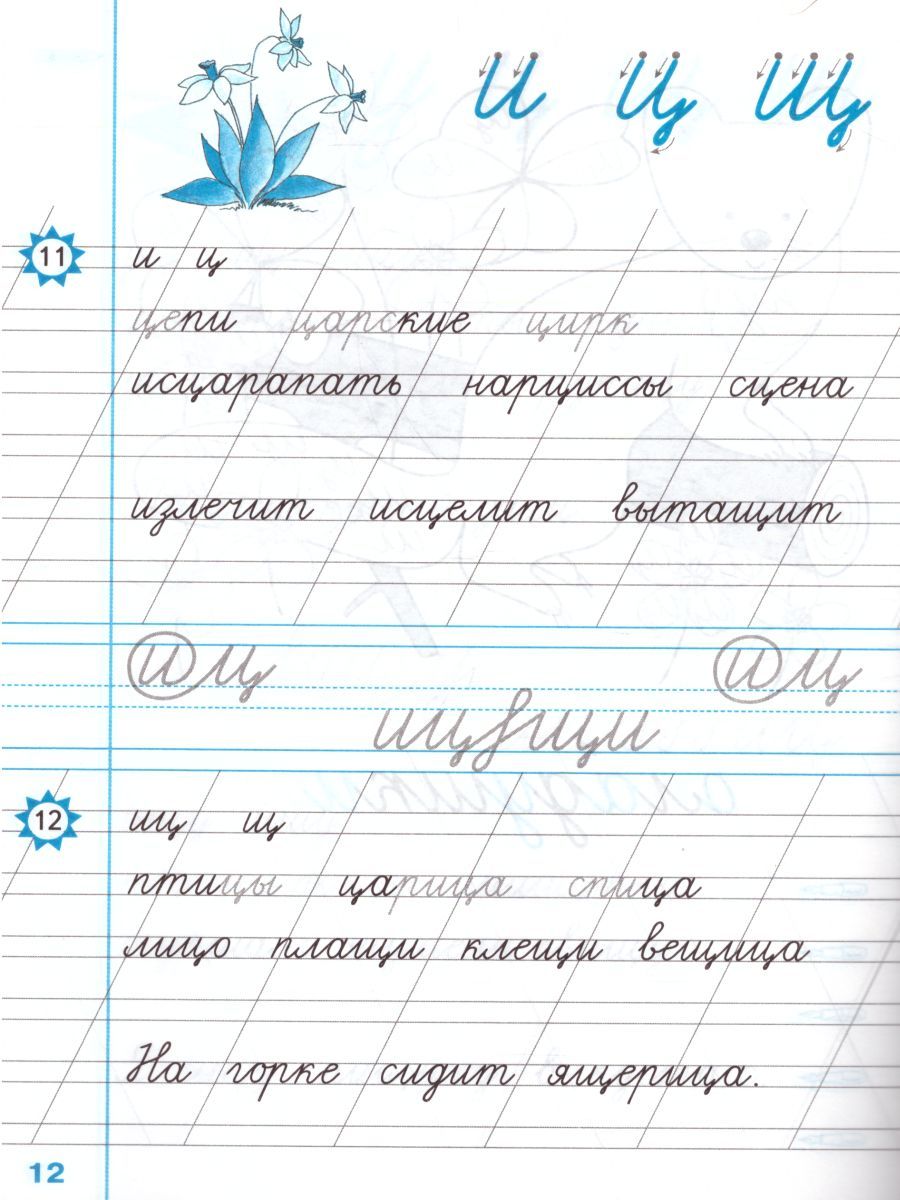 и ц щ
11 и ц
цепи царские цирк
исцарапать нарциссы сцена
излечит исцелит вытащит
и ц и ц
12 иц щ
птицы царица спица
лицо плащи клещи вещица
На горке сидит ящерица.
12